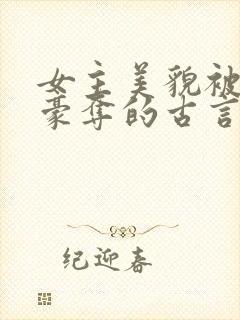 女主美貌被
豪夺的古言
纪迎春